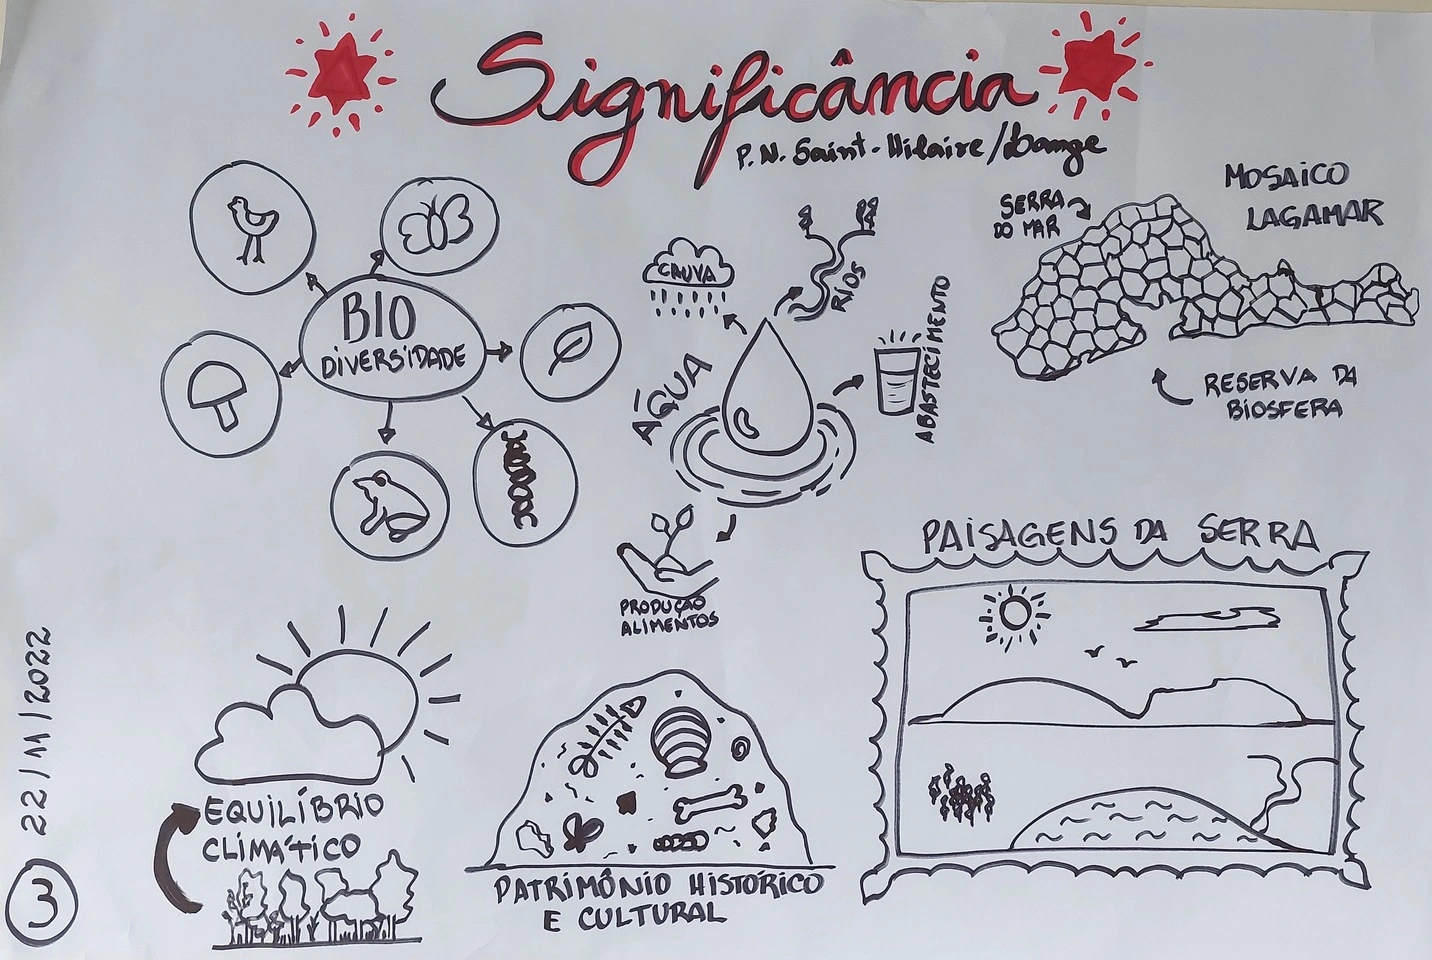 Significância
P.N. Saint-Hilaire/Lange
BIO
DIVERSIDADE
ÁGUA
CHUVA
RIOS
ABASTECIMENTO
PRODUÇÃO
ALIMENTOS
MOSAICO
LAGAMAR
SERRA
DO MAR
RESERVA DA
BIOSFERA
PAISAGENS DA SERRA
EQUILÍBRIO
CLIMÁTICO
PATRIMÔNIO HISTÓRICO
E CULTURAL
22/11/2022
3